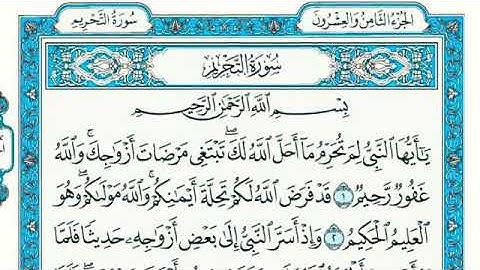 الجُزْءُ الثَّامِنُ وَالعِشْرُونَ
سُورَةُ التَّحْرِيمِ
سُورَةُ التَّحْرِيمِ
بِسْمِ اللَّهِ الرَّحْمَٰنِ الرَّحِيمِ
يَٰٓأَيُّهَا ٱلنَّبِيُّ لِمَ تُحَرِّمُ مَآ أَحَلَّ ٱللَّهُ لَكَۖ تَبۡتَغِي مَرۡضَاتَ أَزۡوَٰجِكَۚ وَٱللَّهُ
غَفُورٞ رَّحِيمٞ ١ قَدۡ فَرَضَ ٱللَّهُ لَكُمۡ تَحِلَّةَ أَيۡمَٰنِكُمۡۚ وَٱللَّهُ مَوۡلَىٰكُمۡۖ وَهُوَ
ٱلۡعَلِيمُ ٱلۡحَكِيمُ ٢ وَإِذۡ أَسَرَّ ٱلنَّبِيُّ إِلَىٰ بَعۡضِ أَزۡوَٰجِهِۦ حَدِيثٗا فَلَمَّا